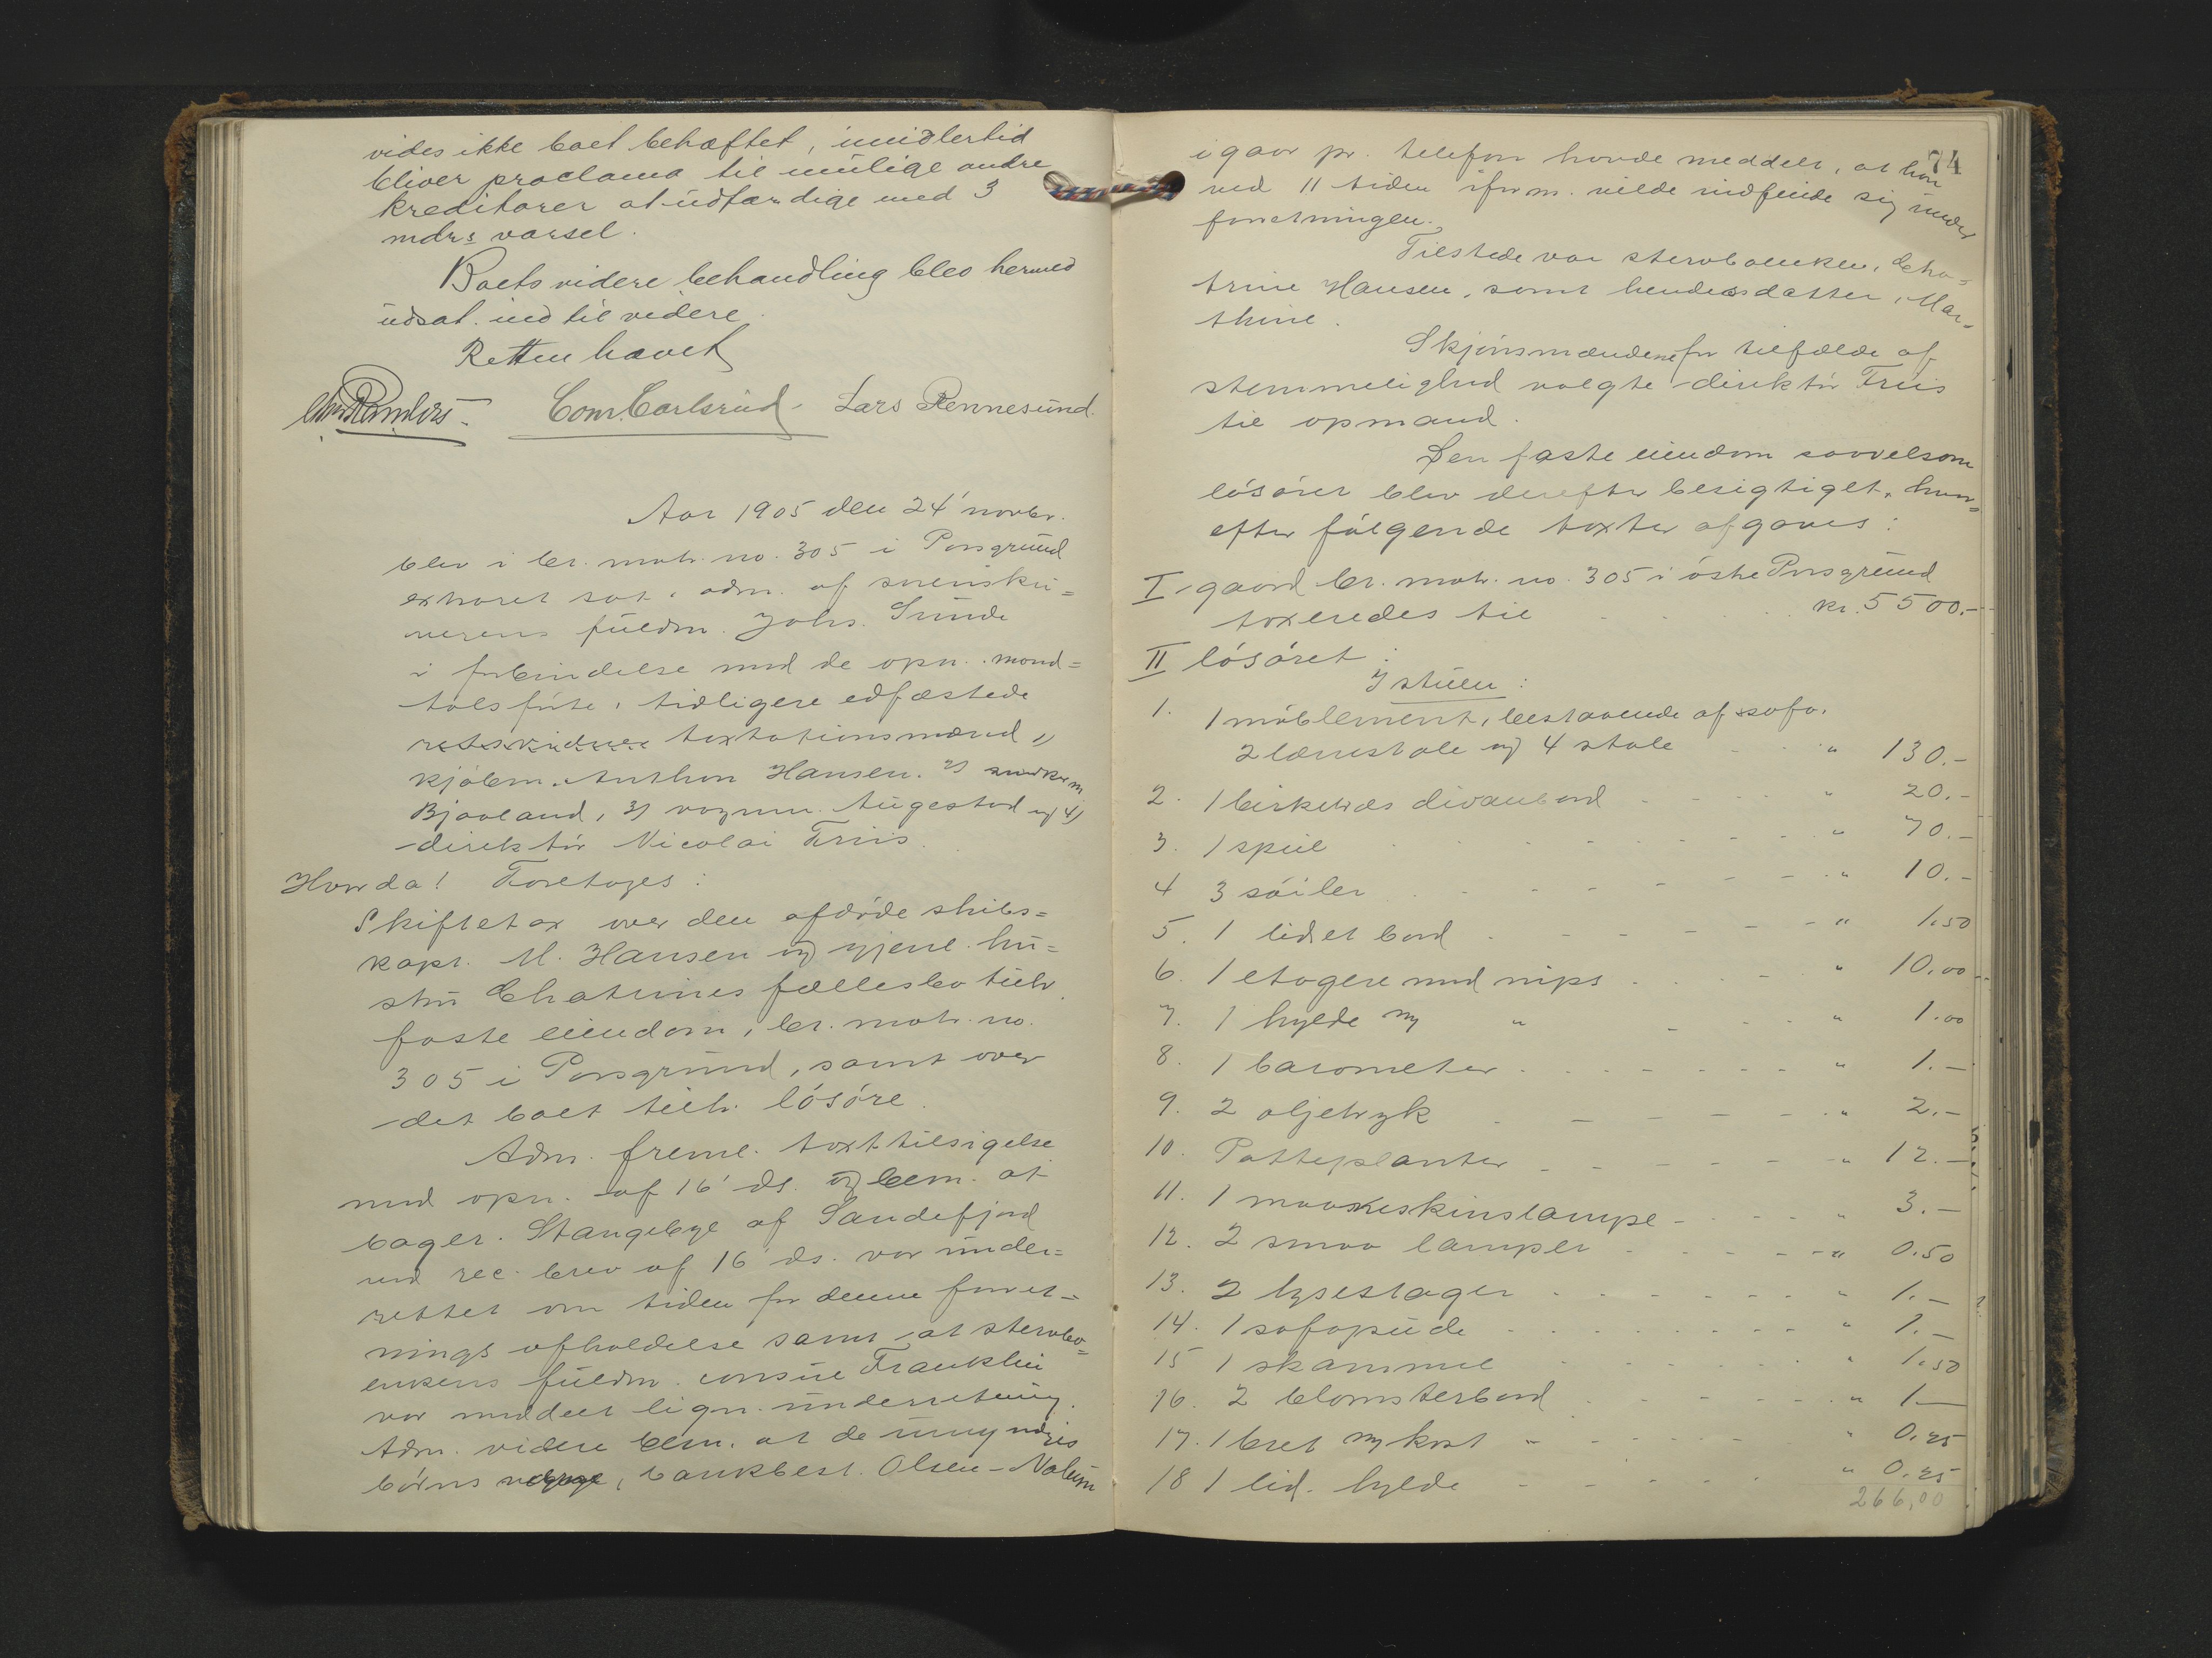 vides ikke boet behæftet, imidlertid
bliver proclama til mulige andre
kreditorer at udfærdige med 3
mdrs varsel.
Boets videre behandling blev hermed
udsat indtil videre.
Retten hævet
Com. Carlsrud Lars Rennesund.
Aar 1905 den 24' novbr.
blev i br. matr. no. 305 i Porsgrund
extraret sat, adm. af sorenskri=
verens fuldm. Johs. Sunde
i forbindelse med de opn. mand=
talsførte, tidligere edfæstede
taxtationsmænd 1)
kjøbm. Anthon Hansen. 2) snedkerm
Bjaaland, 3) vognm. Augestad og 4)
direktør Nicolai Friis.
Hvorda! Foretoges:
Skiftetax over den afdøde skibs=
kapt. M. Hansen og gjenl. hu=
stru Chatrines fællesbo tilh.
faste eiendom, br. matr. no.
305 i Porsgrund, samt over
det boet tilh. løsøre.
Adm. freml. taxttilsigelse
med opn. af 16' ds. og bem. at
bager. Stangebye af Sandefjord
ved rec. brev af 16' ds. var under=
rettet om tiden for denne forret=
nings afholdelse samt at stervbo=
enkens fuldm. consul Franklin
var meddelt lign. underretning.
Adm. videre bem. at de umyndiges
børns verge, bankbest. Olsen-Nalum
74
igaar pr. telefon havde meddelt, at han
ved 11 tiden iform. vilde indfinde sig under
forretningen.
Tilstede var stervboenken, Cha=
trine Hansen, samt hendes datter, Mar=
thine.
Skjønsmændene for tilfælde af
stemmelighed valgte direktør Friis
til opmand.
Den faste eiendom saavelsom
løsøret blev derefter besigtiget, hvor=
efter følgende taxter afgaves:
I gaard br. matr. no. 305 i østre Porsgrund
taxeredes til kr. 5500.-
II løsøret:
I stuen:
1. 1 møblement, bestaaende af sofa,
2 lænestole og 4 stole " 130.-
2. 1 birketræs divanbord " 20.-
3. 1 speil " 70.-
4 3 søiler " 10.-
5. 1 lidet bord " 1.50
6. 1 etagere med nips " 10.00
7. 1 hylde m " " 1.00
8. 1 barometer " 1.-
9. 2 oljetryk " 2.-
10. Potteplanter " 12.-
11. 1 maaneskinslampe " 3.-
12. 2 smaa lamper " 0.50
13. 2 lysestager " 1.-
14. 1 sofapude " 1.-
15 1 skammel " 1.50
16. 2 blomsterbord " 1.-
17. 1 bret m kost " " 0.25
18 1 lid. hylde " 0.25
266,00